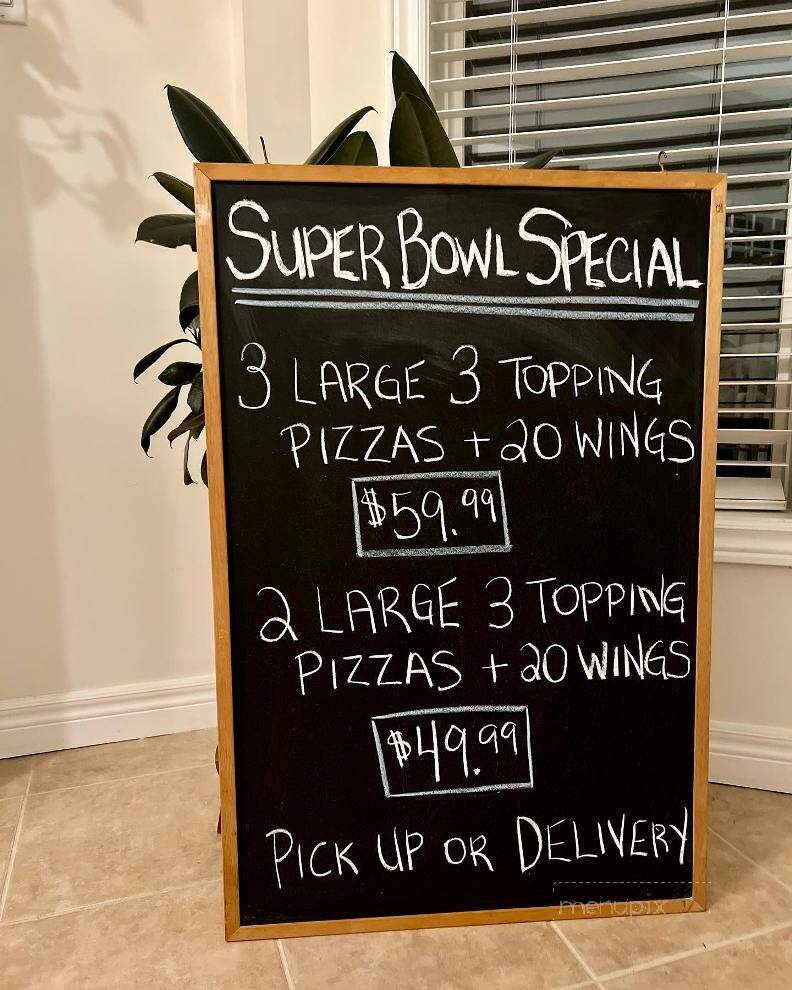 SUPER BOWL SPECIAL
3 LARGE 3 TOPPING
PIZZAS + 20 WINGS
$59.99
2 LARGE 3 TOPPING
PIZZAS + 20 WINGS
$49.99
PICK UP OR DELIVERY
menupix